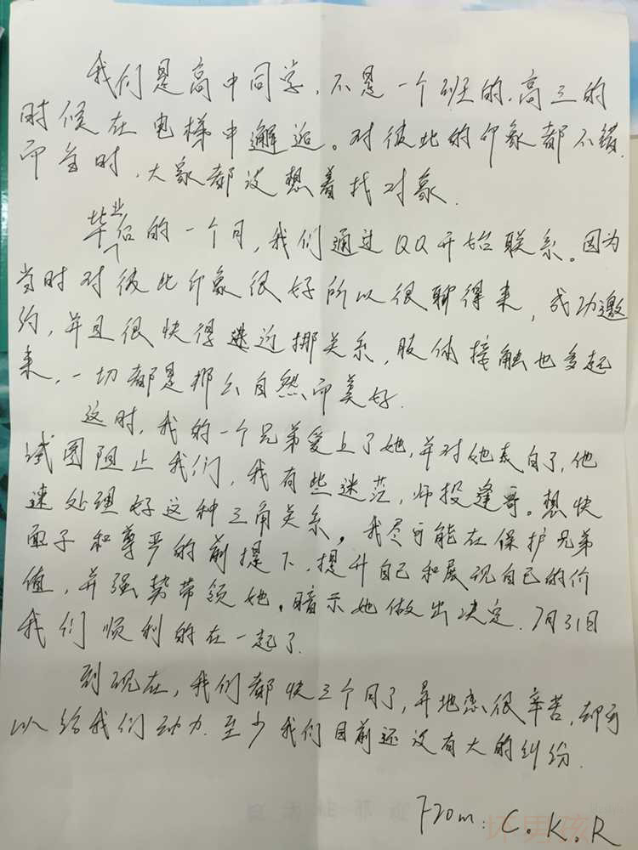 我们是高中同学,不是一个班的.高三的
时候在电梯中邂逅。对彼此的印象都不错.
而当时,大家都没想着找对象.
毕业后的一个月,我们通过QQ开始联系。因为
当时对彼此印象很好所以很聊得来,成功邀
约,并且很快得进近挪关系,肢体接触也多起
来,一切都是那么自然而美好.
这时,我的一个兄弟爱上了她,并对她表白了,他
试图阻止我们,我有些迷茫,师投逢哥。想快
速处理好这种三角关系,我尽可能在保护兄弟
面子和尊严的前提下,提升自己和展现自己的价
值,并强势带领她。暗示她做出决定.7月31日
我们顺利的在一起了.
到现在,我们都快三个月了,异地恋很辛苦,却可
以给我们动力.至少我们目前还没有大的纠纷.
From: C.K.R
坏男孩